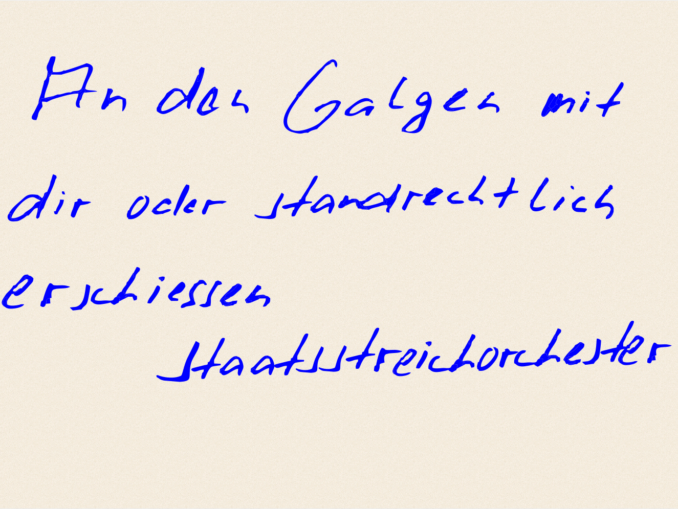 An den Galgen mit
dir oder standrechtlich
erschiessen
staatsstreichorchester